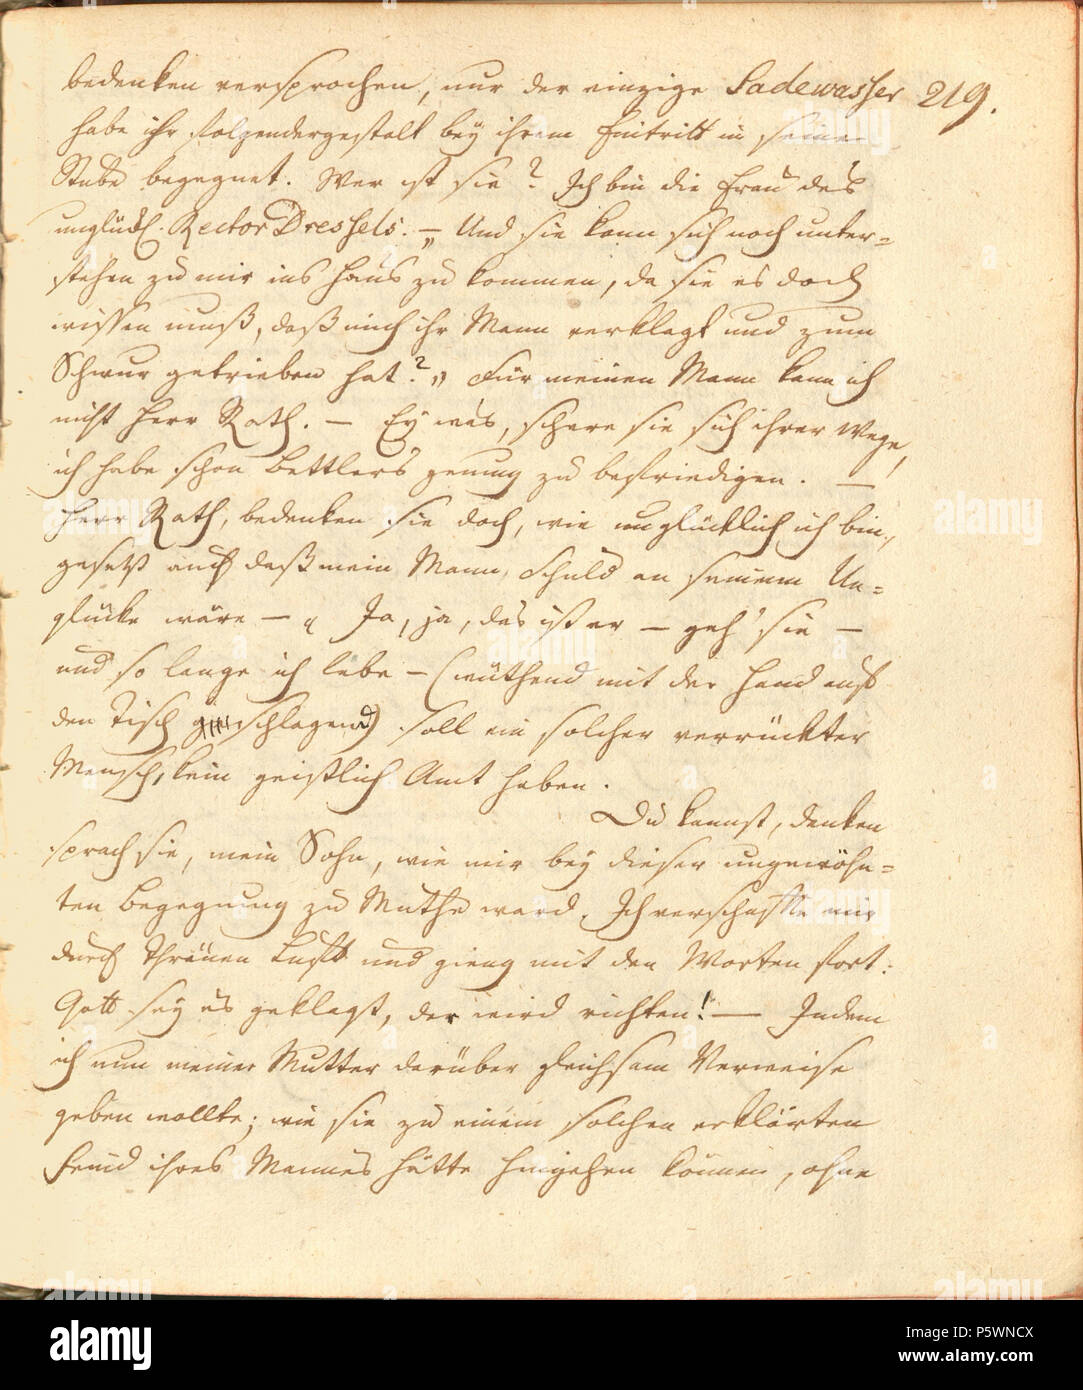 bedenken versprochen, nur der einzige Sadewasser 219.
habe ihr folgendergestalt bey ihrem Eintritt in seine
Stube begegnet. Wer ist sie? Ich bin die Frau des
unglückl. Rector Dressels. – „ Und sie kann sich noch unter=
stehen zu mir ins Haus zu kommen, da sie es doch
wissen muß, daß mich ihr Mann verklagt und zum
Schwur getrieben hat?„ Für meinen Mann kann ich
nicht Herr Rath. – Ey was, schere sie sich ihrer Wege,
ich habe schon Bettlers genung zu befriedigen. –
Herr Rath, bedenken sie doch, wie unglücklich ich bin,
gesetzt auch daß mein Mann Schuld an seinem Un=
glücke wäre – „ Ja, ja, das ist er – geh' sie –
und so lange ich lebe – (wüthend mit der Hand auf
den Tisch schlagend) soll ein solcher verrückter
Mensch, kein geistlich Amt haben.
Du kannst, denken
sprach sie, mein Sohn, wie mir bey dieser ungewöhn=
ten Begegnung zu Muthe ward. Ich verschaffte mir
durch Thränen Lufft und gieng mit den Worten fort:
Gott sey es geklagt, der wird richten! — Indem
ich nun meiner Mutter darüber gleichsam Verweise
geben wollte; wie sie zu einem solchen erklärten
Feind ihres Mannes hätte hingehen können, ohne
alamy
Image ID: P5WNCX
www.alamy.com